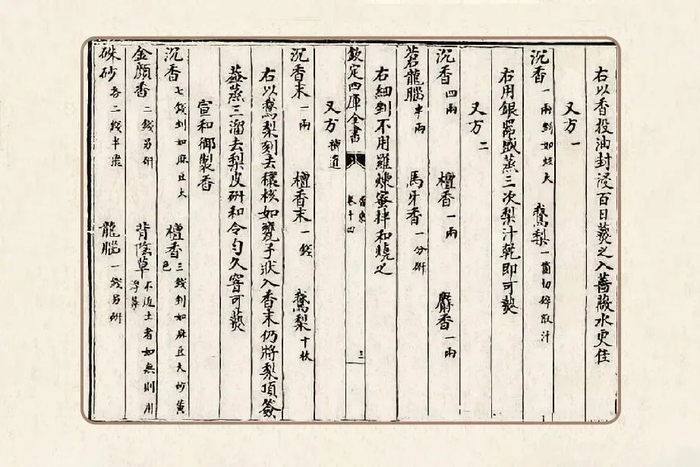 右以香投油封浸百日爇之入薔薇水更佳
又方一
沉香一兩剉如炷大 鵞梨一箇切碎取汁
右用銀器盛蒸三次梨汁乾即可爇
又方二
沉香四兩 檀香一兩 麝香一兩
龍腦半兩 馬牙香一分研
右細剉不用羅煉蜜拌和燒之
欽定四庫全書 香乘 卷十四 三
又方補遺
沉香末一兩 檀香末一錢 鵞梨十枚
右以鵞梨刻去穰核如甕子狀入香末仍將梨頂簽
蓋蒸三溜去梨皮研和令勻久窨可爇
宣和御製香
沉香七錢剉如麻豆大 檀香三錢剉如麻豆大炒黄色
金顔香二錢另研 背陰草不近土者如無則用浮萍
硃砂各二錢半飛 龍腦一錢另研